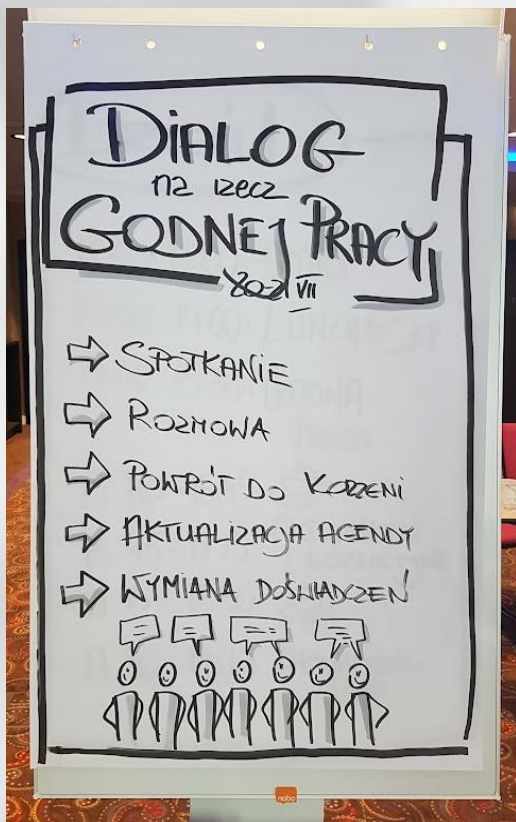 DiALOG
na rzecz
GODNEJ PRACY
20-21 VII
SPOTKANIE
ROZMOWA
POWRÓT DO KORZENI
AKTUALIZACJA AGENDY
WYMIANA DOŚWIADCZEŃ
nobo